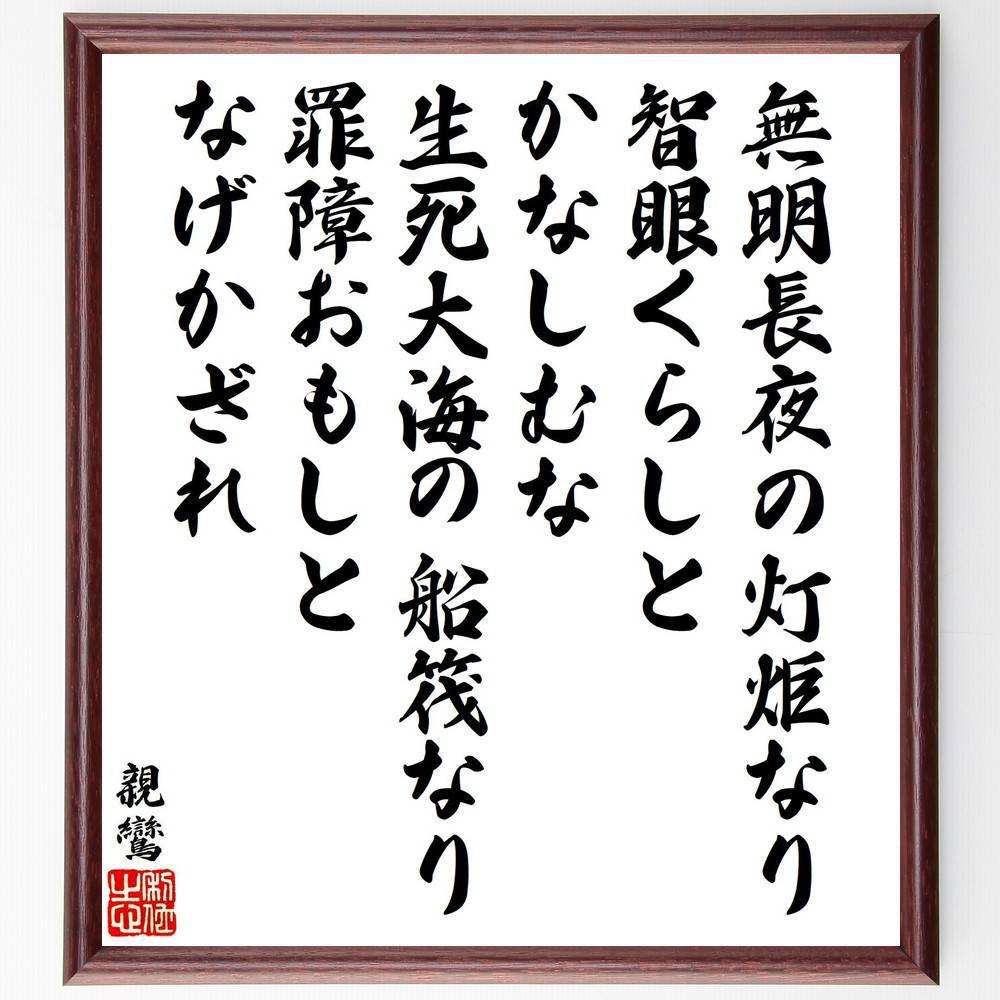 無明長夜の灯炬なり
智眼くらしと
かなしむな
生死大海の船筏なり
罪障おもしと
なげかざれ
親鸞